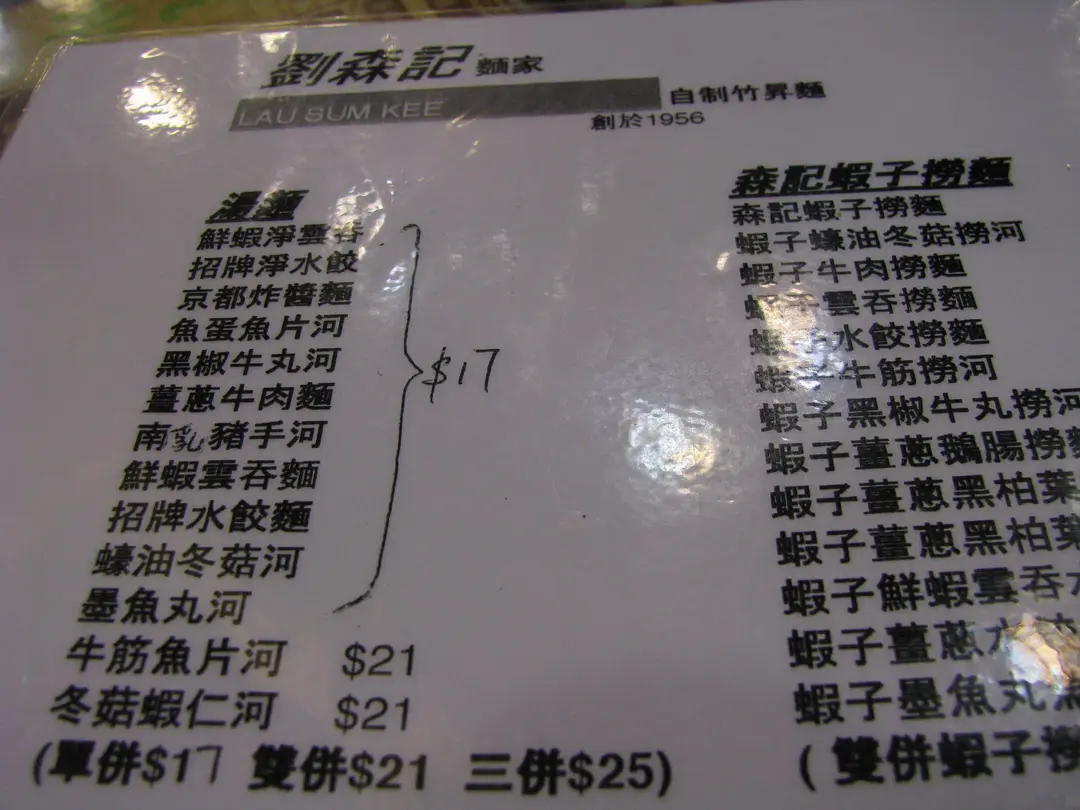 劉森記 麵家
LAU SUM KEE 自制竹昇麵
創於1956
湯麵
鮮蝦淨雲吞
招牌淨水餃
京都炸醬麵
魚蛋魚片河
黑椒牛丸河
薑蔥牛肉麵
南乳豬手河
鮮蝦雲吞麵
招牌水餃麵
蠔油冬菇河
墨魚丸河
$17
牛筋魚片河 $21
冬菇蝦仁河 $21
(單併$17 雙併$21 三併$25)
森記蝦子撈麵
森記蝦子撈麵
蝦子蠔油冬菇撈河
蝦子牛肉撈麵
蝦子雲吞撈麵
蝦子水餃撈麵
蝦子牛筋撈河
蝦子黑椒牛丸撈河
蝦子薑蔥鵝腸撈麵
蝦子薑蔥黑柏葉
蝦子薑蔥黑柏葉
蝦子鮮蝦雲吞
蝦子薑蔥
蝦子墨魚丸
(雙併蝦子撈